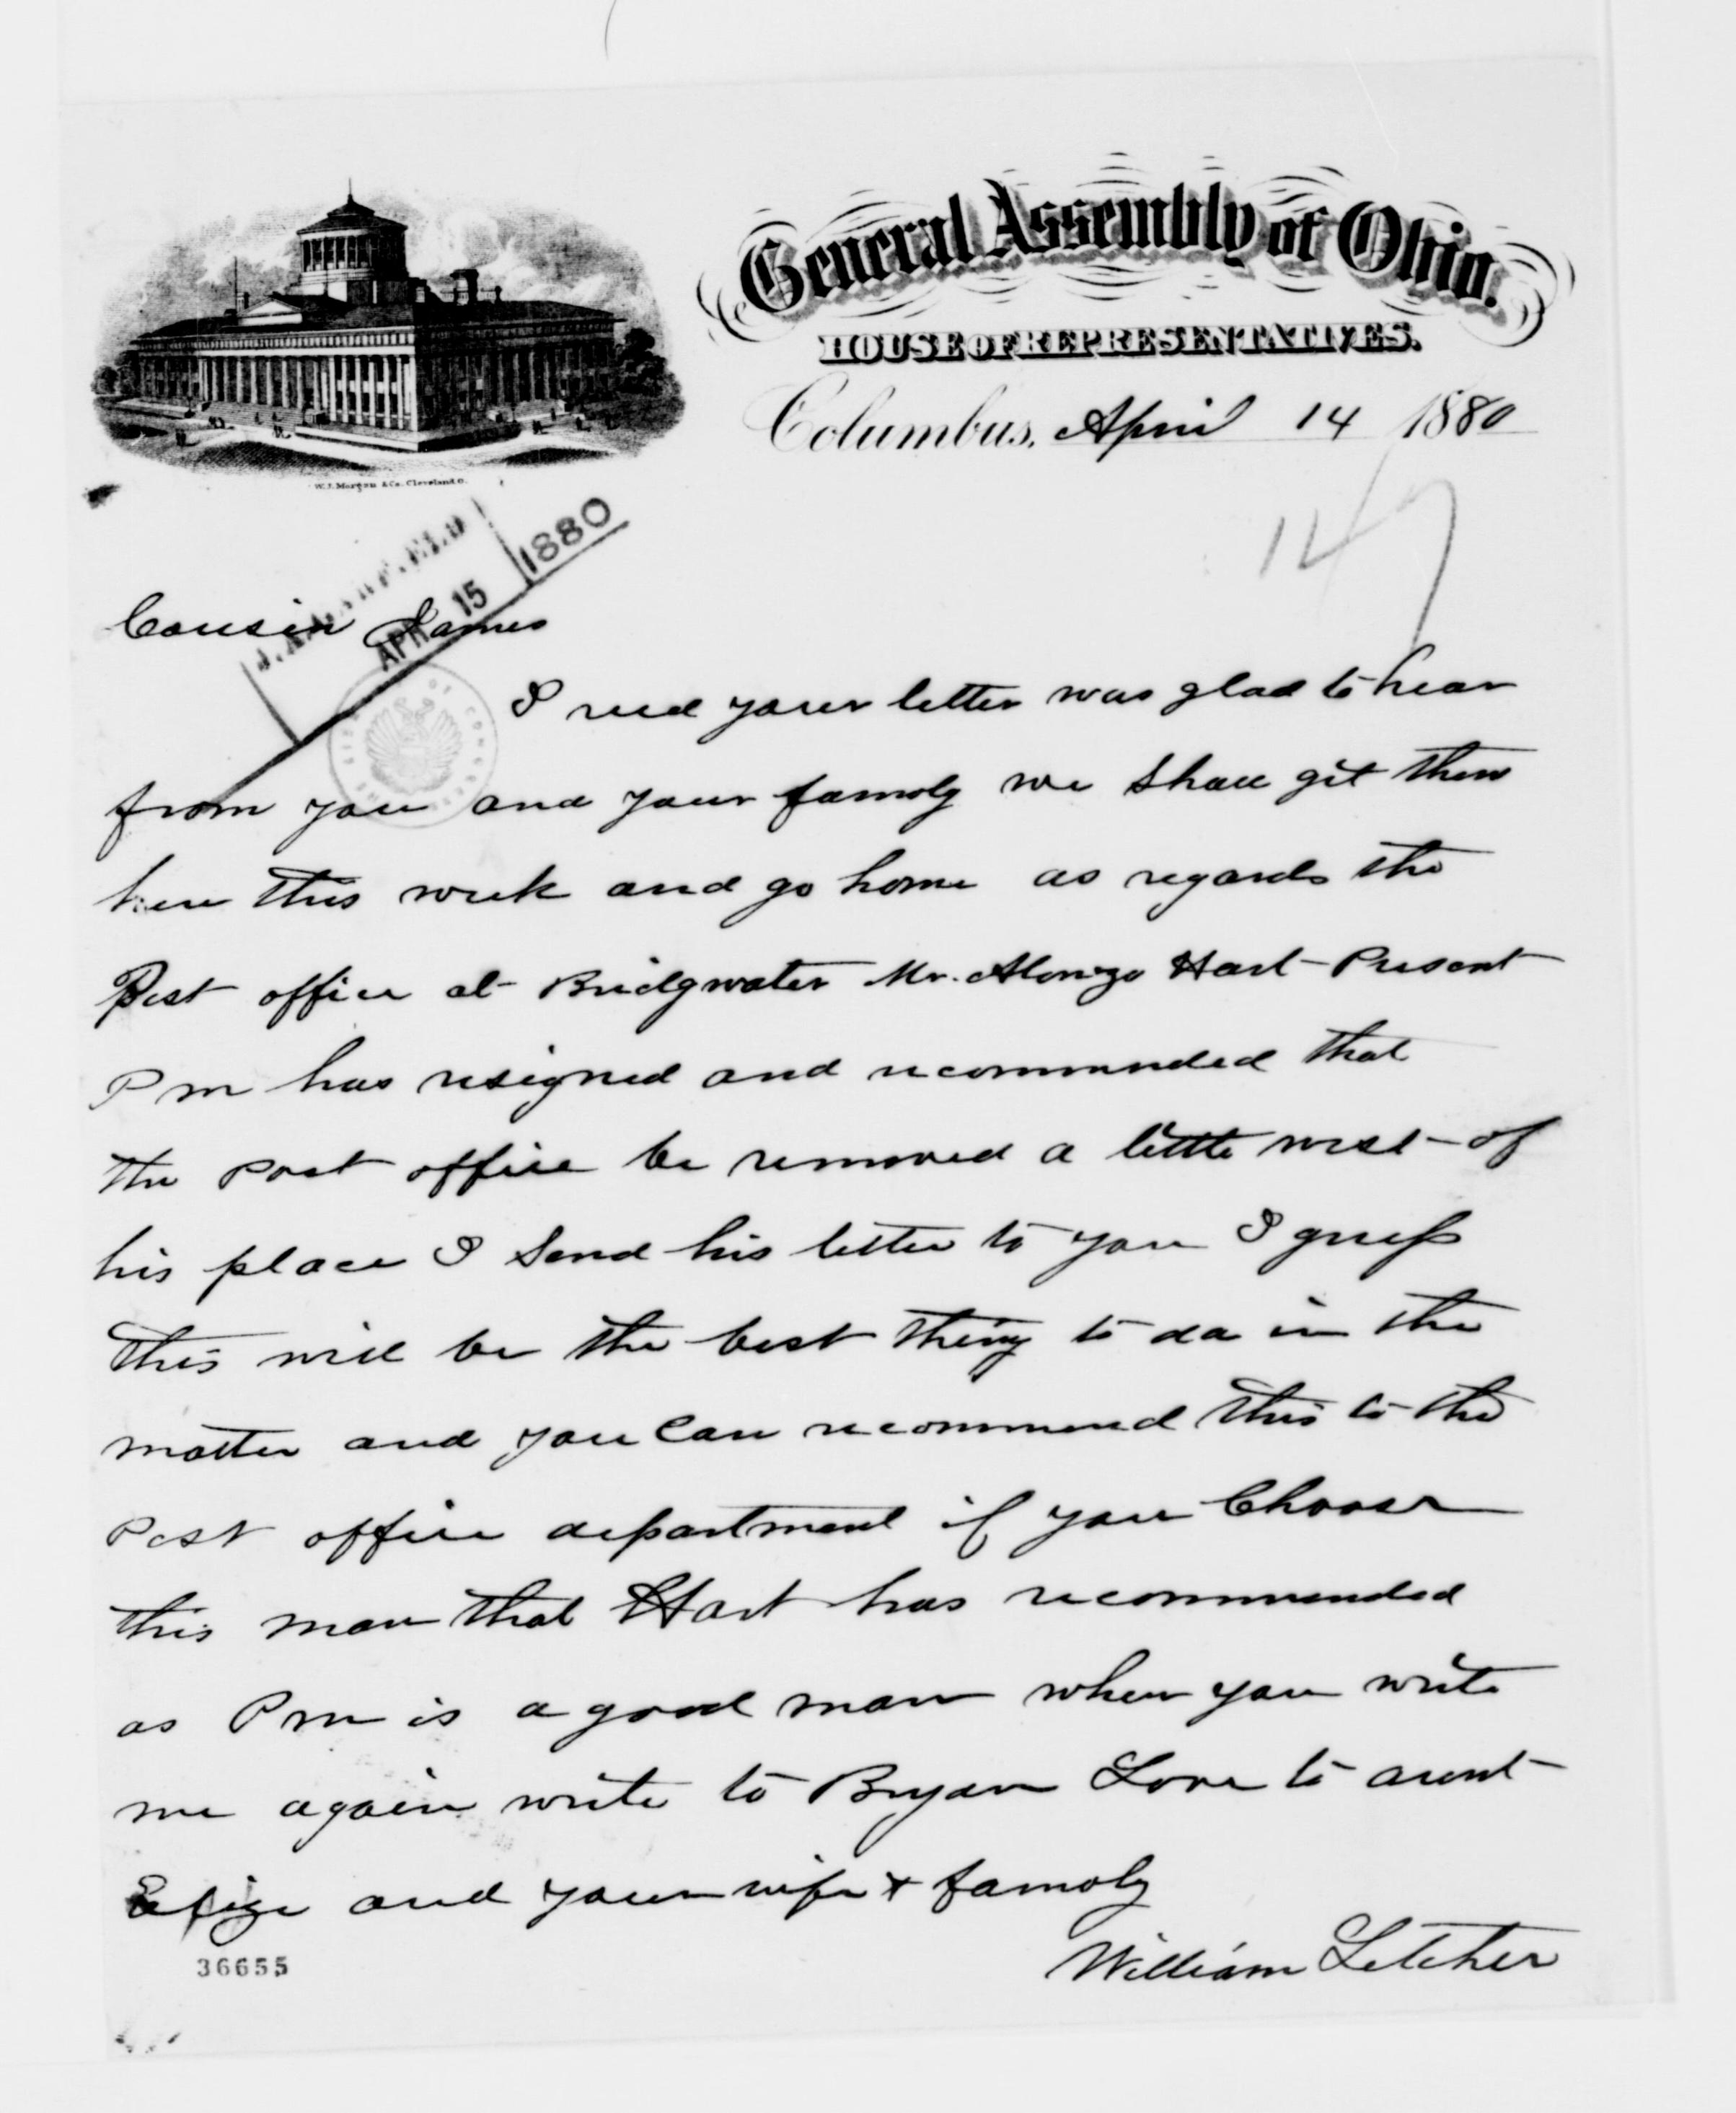 General Assembly of Ohio.
HOUSE OF REPRESENTATIVES.
Columbus, April 14 1880
W.J. Morgan & Co. Cleveland O.
1880
APR 15
Cousin James
I recd your letter was glad to hear
from you and your famoly we shall git thru
here this week and go home as regards the
Post office at Bridgwater Mr. Alonzo Hart Present
Pm has resigned and recommended that
the Post office be removed a little west of
his place I send his letter to you I guess
this will be the best thing to do in the
matter and you can recommend this to the
Post office department if you Choose
this man that Hart has recommended
as Pm is a good man when you write
me again write to Bryan Love to aunt
and your wife & famoly
William Letcher
36655